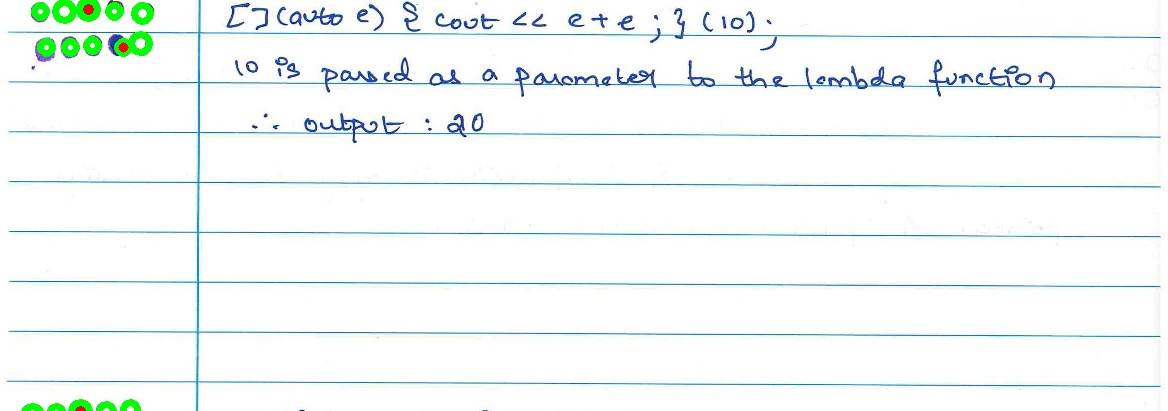 [](auto e) { cout << e+e ; } (10);
10 is passed as a parameter to the lambda function
∴ output : 20